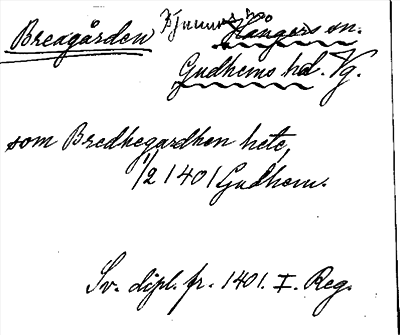 Bredgården Hångers sn.
Gudhems hd. Vg.
som Bredhegardhen hete,
1/2 1401 Gudhem.
Sv. dipl. fr. 1401. I. Reg.